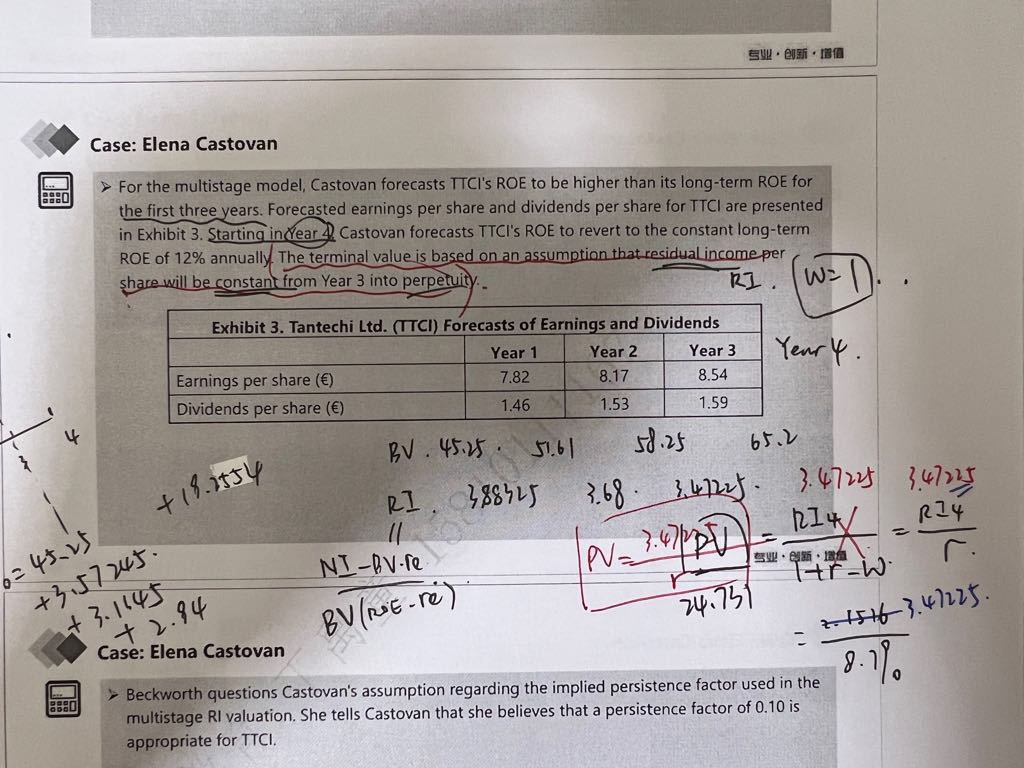 专业·创新·增值
Case: Elena Castovan
➢ For the multistage model, Castovan forecasts TTCI's ROE to be higher than its long-term ROE for
the first three years. Forecasted earnings per share and dividends per share for TTCI are presented
in Exhibit 3. Starting in Year 4, Castovan forecasts TTCI's ROE to revert to the constant long-term
ROE of 12% annually. The terminal value is based on an assumption that residual income per
share will be constant from Year 3 into perpetuity.
RI. W=1
Exhibit 3. Tantechi Ltd. (TTCI) Forecasts of Earnings and Dividends
Year 1 Year 2 Year 3
Year 4.
Earnings per share (€) 7.82 8.17 8.54
Dividends per share (€) 1.46 1.53 1.59
4
3
BV. 45.25. 51.61 58.25 65.2
+18.2554
RI. 3.88325 3.68. 3.47225. 3.47225 3.47225
NI-BV·re
BV(ROE-re)
PV= 3.47225 / r
PV = RI4 / 1+r-W = RI4 / r.
24.731
= 2.1516 3.47225. / 8.7%
=45.25
+3.57245.
+3.1145
+2.94
专业·创新·增值
Case: Elena Castovan
➢ Beckworth questions Castovan's assumption regarding the implied persistence factor used in the
multistage RI valuation. She tells Castovan that she believes that a persistence factor of 0.10 is
appropriate for TTCI.